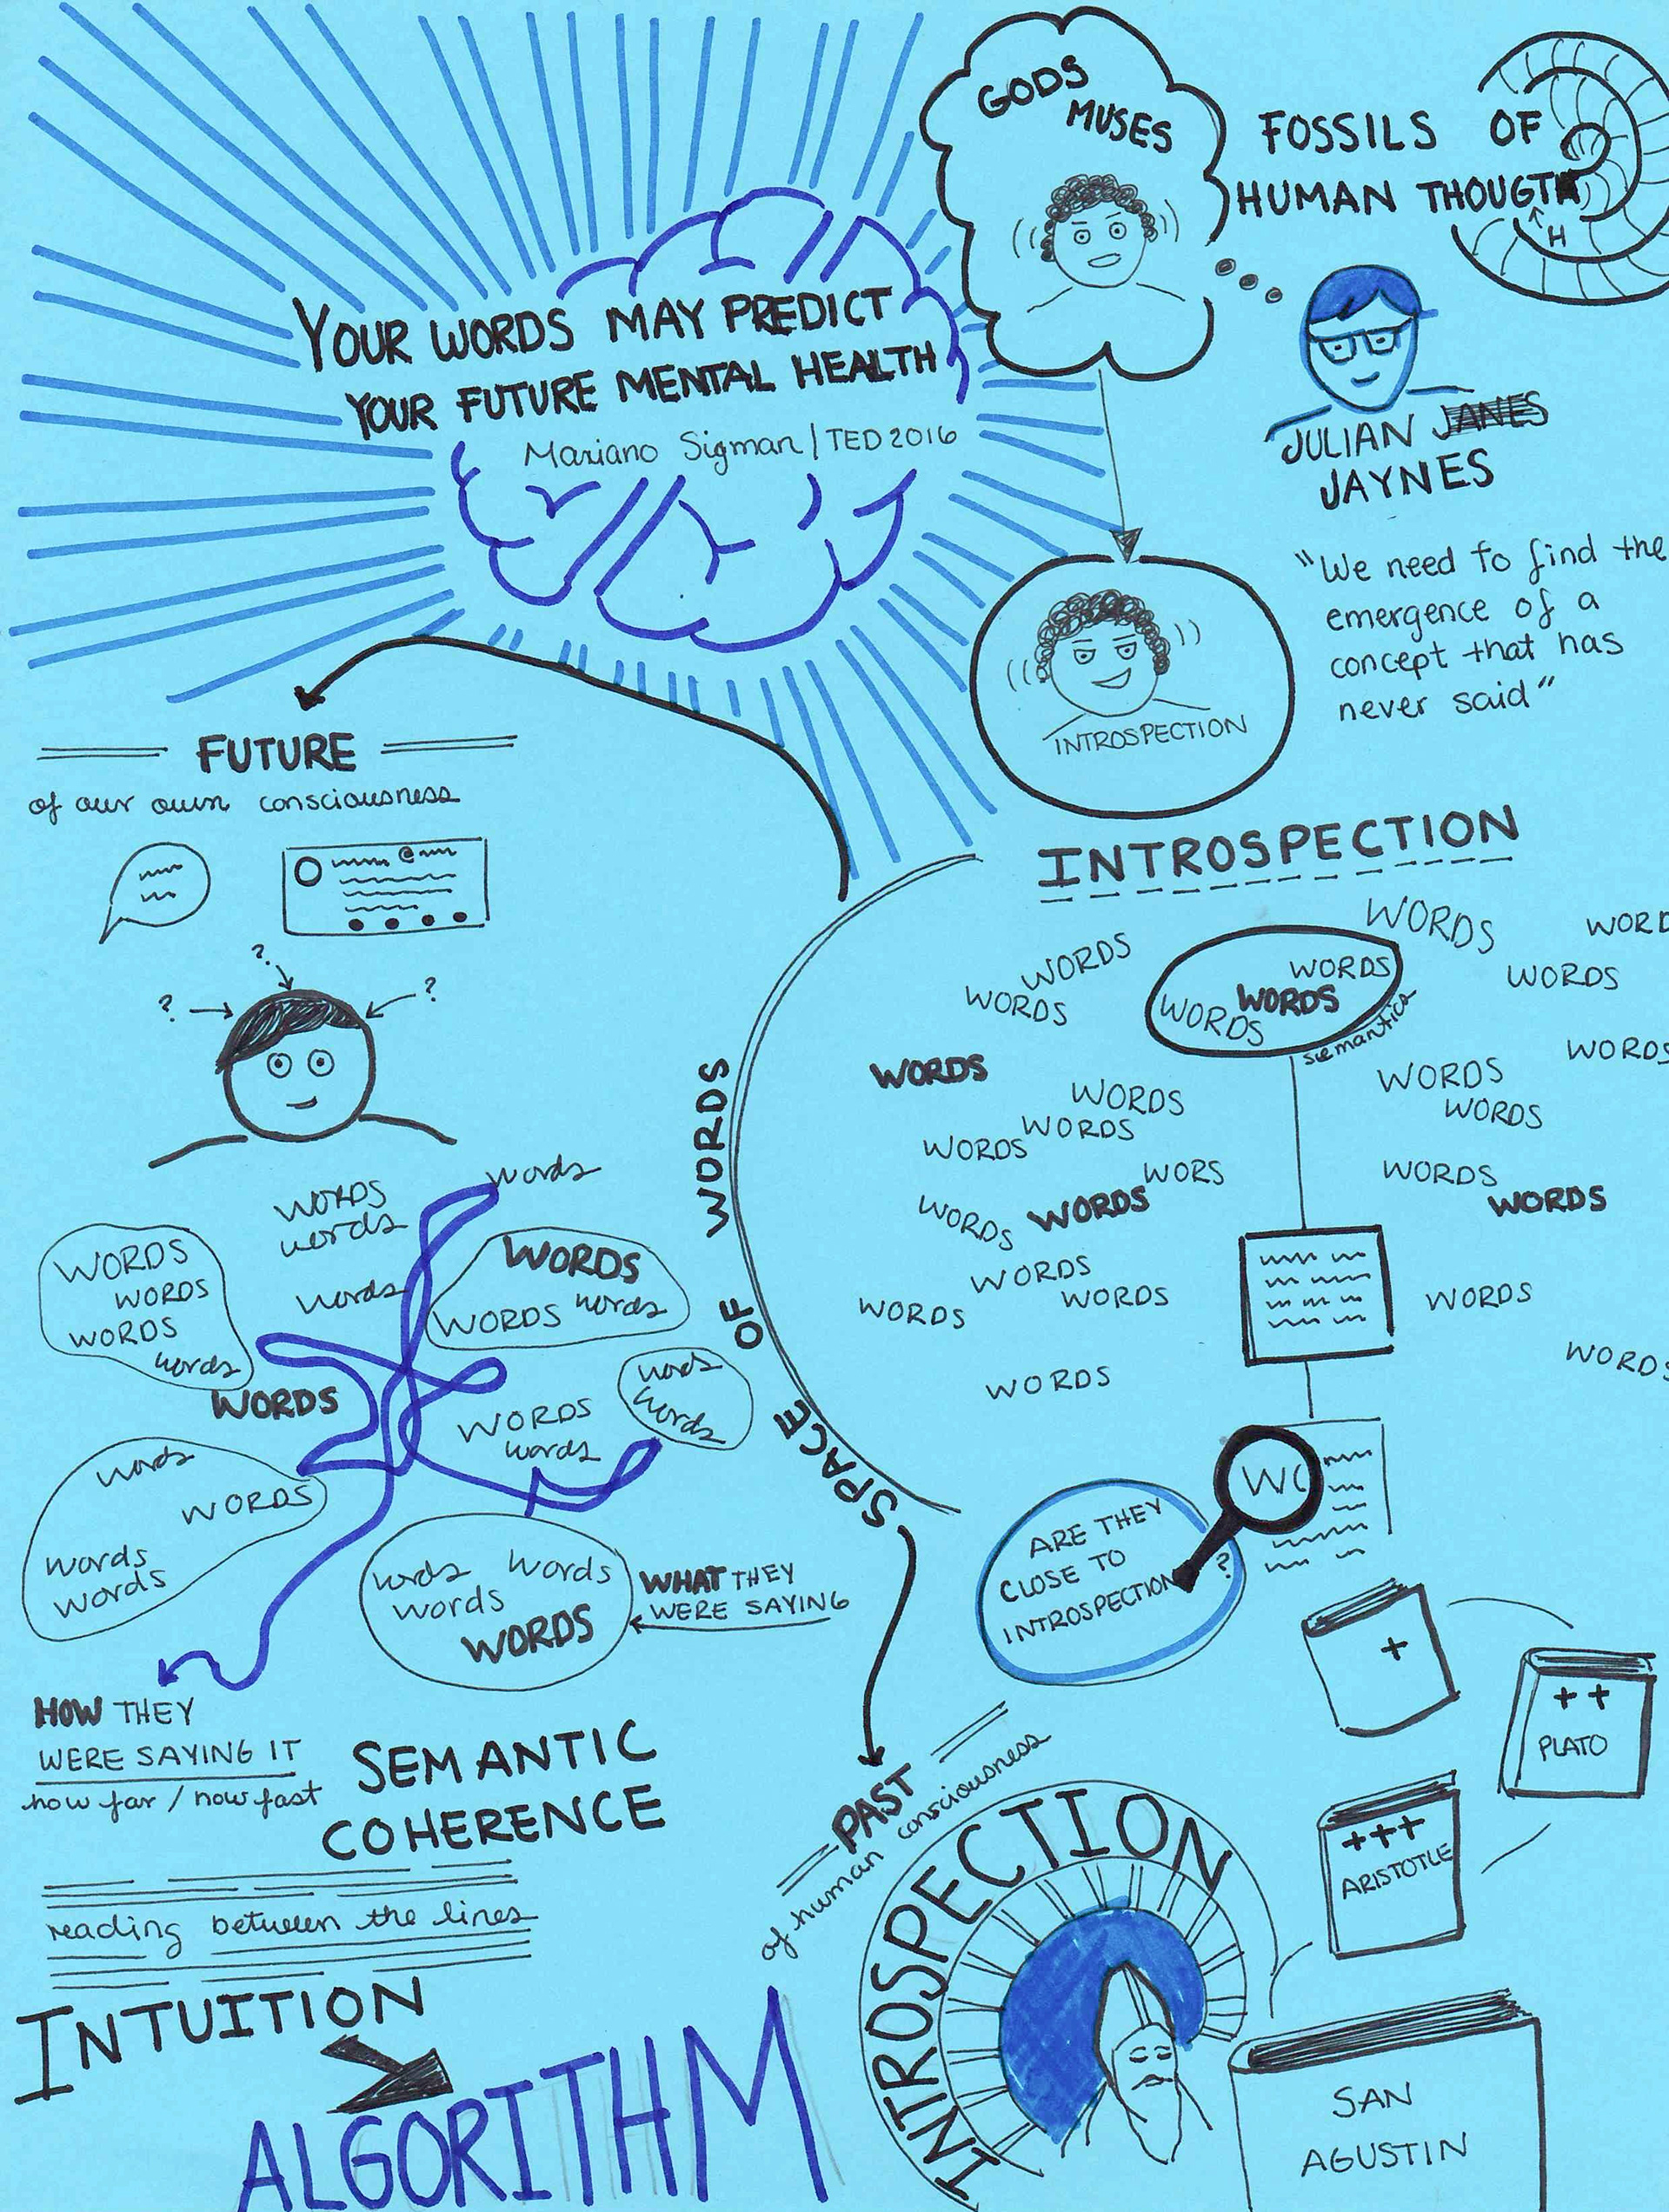 YOUR WORDS MAY PREDICT
YOUR FUTURE MENTAL HEALTH
Mariano Sigman / TED 2016
GODS
MUSES
FOSSILS OF
HUMAN THOUGTH
H
JULIAN JANES
JAYNES
"We need to find the
emergence of a
concept that has
never said"
INTROSPECTION
INTROSPECTION
WORDS
WORD
WORDS
WORDS
WORDS
WORDS
WORDS
WORDS
WORDS
semantics
WORDS
WORDS
WORDS
WORDS
WORDS
WORDS
WORDS
WORDS
WORS
WORDS
WORDS
WORDS
WORDS
WORDS
WORDS
WORDS
WORDS
WORDS
WORDS
WO
ARE THEY
CLOSE TO
INTROSPECTION ?
+
++
PLATO
+++
ARISTOTLE
SAN
AGUSTIN
SPACE OF WORDS
PAST
of human consciousness
INTROSPECTION
FUTURE
of our own consciousness
@
?
? ?
words
WORDS
words
WORDS
WORDS
WORDS
words
words
WORDS
WORDS words
WORDS
words
words
WORDS
words
words
WORDS
words
words
words words
words
WORDS
WHAT THEY
WERE SAYING
HOW THEY
WERE SAYING IT
how far / how fast
SEMANTIC
COHERENCE
reading between the lines
INTUITION
ALGORITHM